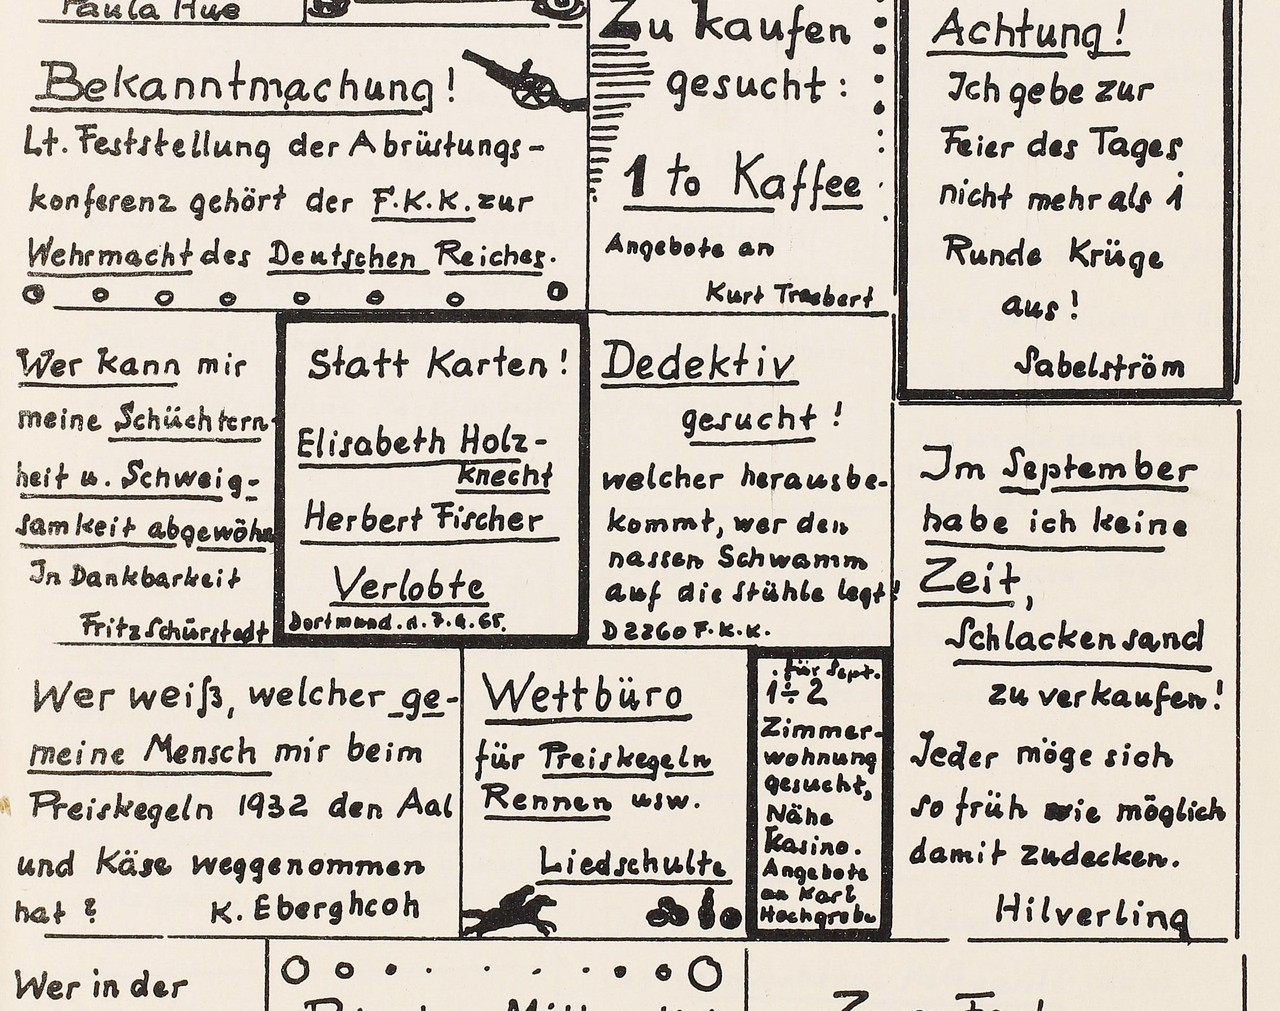 Paula Hue
Bekanntmachung!
Lt. Feststellung der Abrüstungs-
konferenz gehört der F.K.K. zur
Wehrmacht des Deutschen Reiches.
Zu kaufen
gesucht:
1 to Kaffee
Angebote an
Kurt Trasbert
Achtung!
Ich gebe zur
Feier des Tages
nicht mehr als 1
Runde Krüge
aus!
Sabelström
Wer kann mir
meine Schüchtern-
heit u. Schweig-
samkeit abgewöhn
In Dankbarkeit
Fritz Schürstedt
Statt Karten!
Elisabeth Holz-
knecht
Herbert Fischer
Verlobte
Dortmund. d. 7.9.65.
Dedektiv
gesucht!
welcher herausbe-
kommt, wer den
nassen Schwamm
auf die Stühle legt!
D 2260 F.K.K.
Im September
habe ich keine
Zeit,
Schlackensand
zu verkaufen!
Jeder möge sich
so früh wie möglich
damit zudecken.
Hilverling
Wer weiß, welcher ge-
meine Mensch mir beim
Preiskegeln 1932 den Aal
und Käse weggenommen
hat?
K. Eberghcoh
Wettbüro
für Preiskegeln
Rennen usw.
Liedschulte
für Sept.
1÷2
Zimmer-
wohnung
gesucht,
Nähe
Kasino.
Angebote
an Karl
Hochgrebe
Wer in der